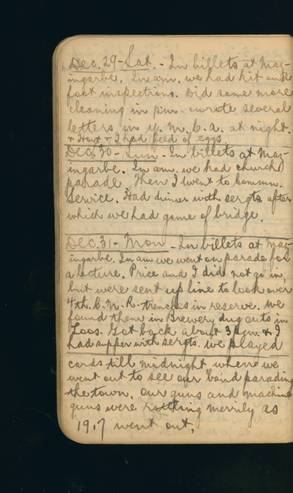 Dec. 29 - Sat. - In billets at Maz-
ingarbe. In a.m. we had kit and
foot inspections. Did some more
cleaning in p.m. wrote several
letters in Y.M.C.A. at night.
& Howt & I had feed of eggs
Dec. 30 - Sun. - In billets at Maz-
ingarbe. In a.m. we had church
parade. Then I went to commun.
service. Had dinner with sergts after
which we had game of bridge.
Dec. 31 - Mon - In billets at Maz-
ingarbe. In a.m. we went on parade for
a lecture. Price and I did not go in,
but were sent up line to look over
7th. C.M.R. trenches in reserve. We
found them in Brewery dug outs in
Loos. Got back about 3 p.m. & I
had supper with sergts. we played
cards till midnight where we
went out to see our band parading
the town. Our guns and machine
guns were rattling merrily as
1917 went out.